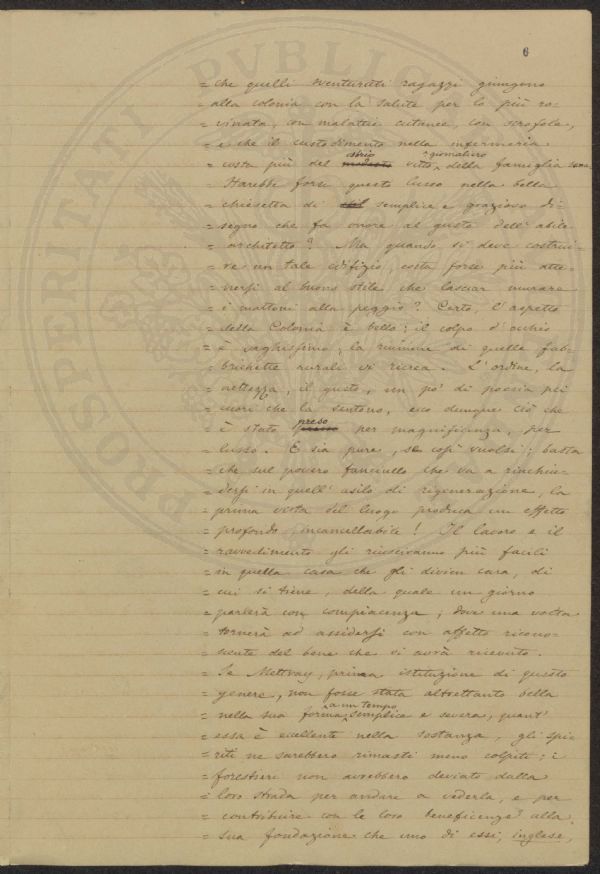 6
= che quelli sventurati ragazzi giungono
= alla colonia con la salute per lo più ro-
= vinata, con malattie cutanee, con scrofole,
= e che il custodimento nella infermeria
= costa più del strigo modesto vitto giornaliero della famiglia sana.
= Starebbe forse questo lusso nella bella
= chiesetta di semplice e grazioso di-
= segno che fa onore al gusto dell' abile
= architetto? Ma quando si deve costrui-
= re un tale edifizio, costa forse più atte-
= nersi al buono stile che lasciar murare
= i mattoni alla peggio? Certo, l'aspetto
= della Colonia è bello; il colpo d'occhio
= è vaghissimo, la riunione di quelle fab-
= brichette rurali vi ricrea. L'ordine, la
= nettezza, il gusto, un po' di poesia pei
= cuori che la sentono, ecco dunque ciò che
= è stato preso per magnificenza, per
= lusso. E sia pure, se così vuolsi; basta
= che sul povero fanciullo che va a rinchiu-
= dersi in quell' asilo di rigenerazione, la
= prima vista del luogo produca un effetto
= profondo incancellabile! Il lavoro e il
= ravvedimento gli riusciranno più facili
= in quella casa che gli divien cara, di
= cui si tiene, della quale un giorno
= parlerà con compiacenza; dove una volta
= tornerà ad assidersi con affetto ricono-
= scente del bene che vi avrà ricevuto.
= Se Mettray, prima istituzione di questo
= genere, non fosse stata altrettanto bella
= nella sua forma a un tempo semplice e severa, quant'
= essa è eccellente nella sostanza, gli spi-
= riti ne sarebbero rimasti meno colpiti; i
= forestieri non avrebbero deviato dalla
= loro strada per andare a vederla, e per
= contribuire con le loro beneficenze alla
= sua fondazione che uno di essi, inglese,
PROSPERITATI PVBLIC